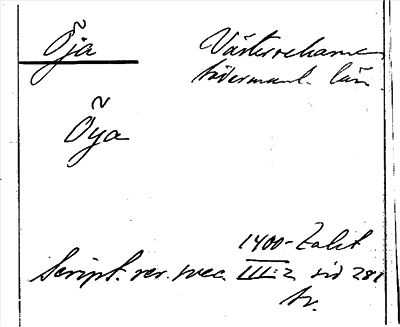 Öja Västerrekarne
Södermanl. län.
Öya
1400-talet
Script. rer. svec. III:2 sid 281
tr.